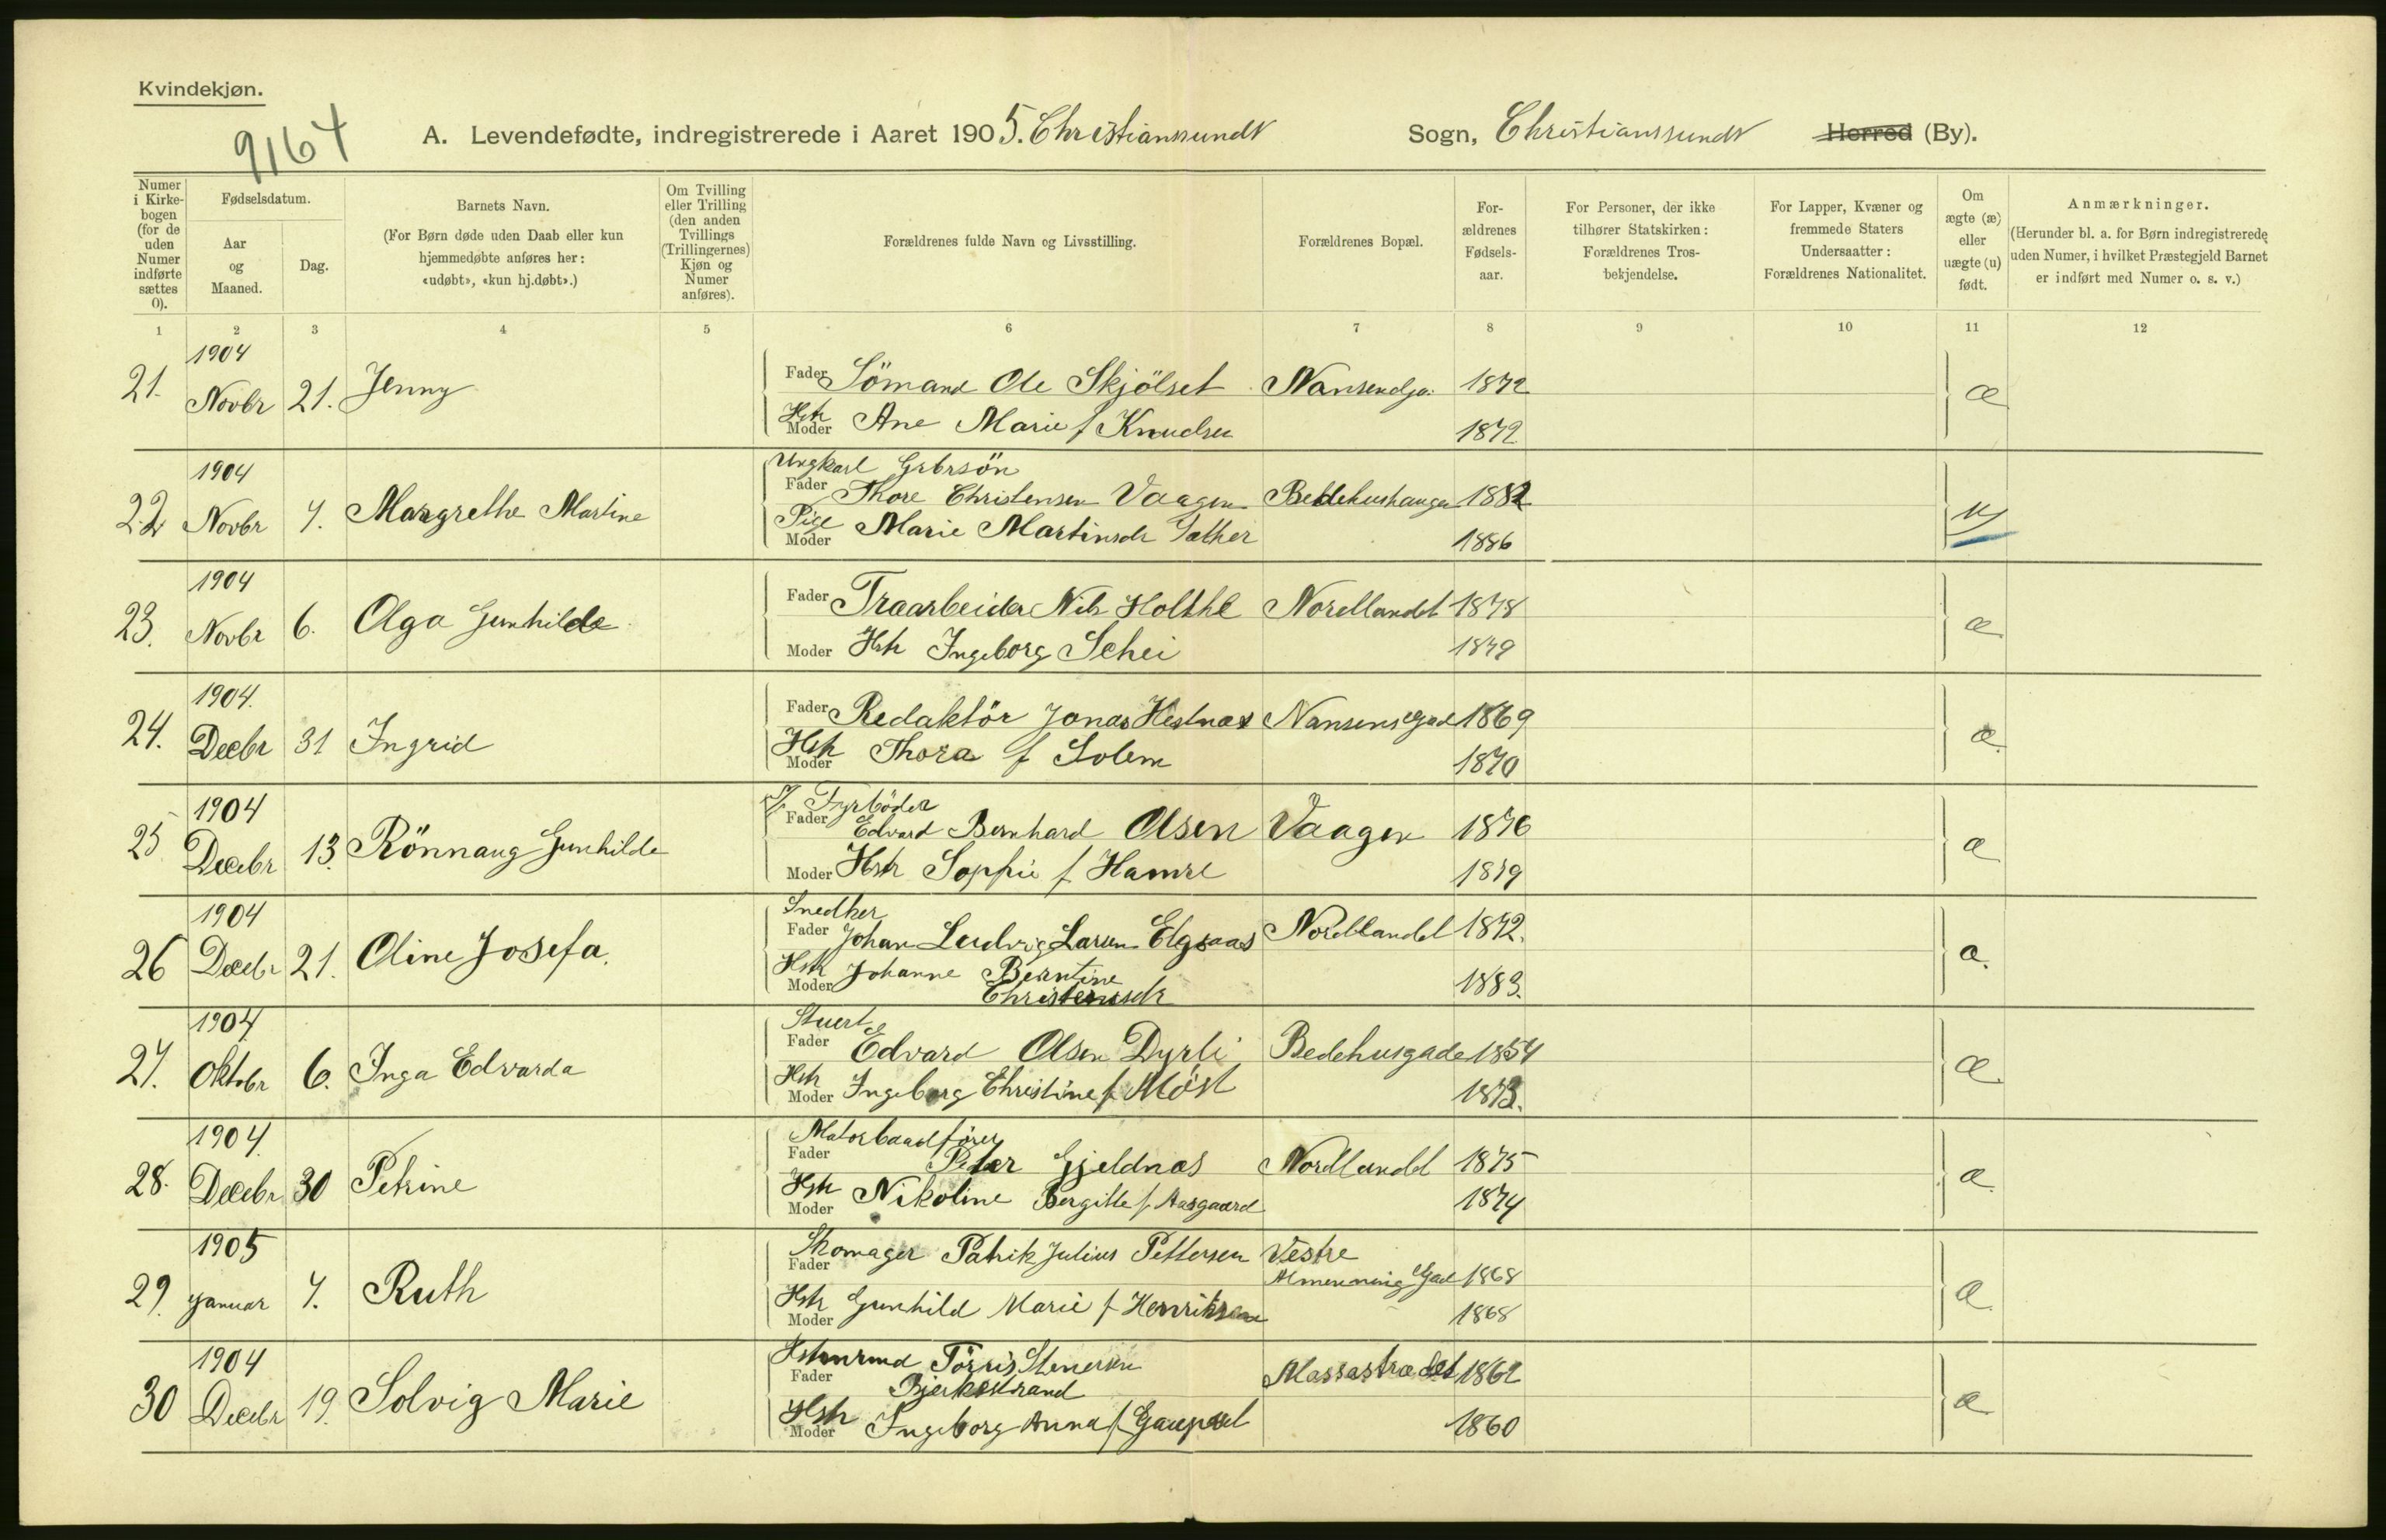 Kvindekjøn.
9164
A. Levendefødte, indregistrerede i Aaret 1905. Christianssunds Sogn, Christianssunds Herred (By).
Numer i Kirkebogen (for de uden Numer indførte sættes 0).
Fødselsdatum.
Aar og Maaned.
Dag.
Barnets Navn.
(For Børn døde uden Daab eller kun hjemmedøbte anføres her: «udøbt», «kun hj.døbt».)
Om Tvilling eller Trilling (den anden Tvillings (Trillingernes) Kjøn og Numer anføres).
Forældrenes fulde Navn og Livsstilling.
Forældrenes Bopæl.
Forældrenes Fødselsaar.
For Personer, der ikke tilhører Statskirken: Forældrenes Trosbekjendelse.
For Lapper, Kvæner og fremmede Staters Undersaatter: Forældrenes Nationalitet.
Om ægte (æ) eller uægte (u) født.
Anmærkninger.
(Herunder bl. a. for Børn indregistrerede uden Numer, i hvilket Præstegjeld Barnet er indført med Numer o. s. v.)
1 2 3 4 5 6 7 8 9 10 11 12
1904
21. Novbr 21. Jenny Fader Sömand Ole Skjölset Nansensga. 1872 æ
Hstr Moder Ane Marie f Knudsen 1872
1904 Ungkarl Grbrsön
22 Novbr 7. Margrethe Martine Fader Thore Christensen Vaagen Bedehushaugen 1882 u
Pige Moder Marie Martinsdr Sæther 1886
1904
23. Novbr 6. Olga Gunhilde Fader Træarbeider Nils Holthe Nordlandet 1878 æ
Moder Hstr Ingeborg Schei 1879
1904.
24. Decbr 31 Ingrid Fader Redaktör Jonas Hestnæs Nansensgad 1869 æ
Hstr Moder Thora f Solem 1870
1904 Fyrböder
25 Decebr 13. Rönnaug Gunhilde Fader Edvard Bernhard Olsen Vaagen 1876 æ
Moder Hstr Sophie f Hamre 1879
1904 Snedker
26 Decebr 21. Oline Josefa. Fader Johan Ludvig Larsen Elgsaas Nordlandet 1872. æ
Hstr Moder Johanne Berntine 1883.
Christensdr
1904 Stuert
27. Oktobr 6. Inga Edvarda Fader Edvard Olsen Dyrli Bedehusgade 1854 æ
Hstr Moder Ingeborg Christine f Möst 1873.
1904 Motorbaadfører
28. Decebr 30 Petrine Fader Peter Gjeldnæs Nordlandet 1875 æ
Hstr Moder Nikoline Bergitte f Aasgaard 1874
1905 Skomager Patrik Julius Pettersen Vestre
29. Januar 7. Ruth Fader Almenning Gad 1868 æ
Hstr Moder Gunhild Marie f Henriksen 1868
1904 Törris Stenersen
30 Decebr 19. Solvig Marie Fader Bjerkestrand Massastrædet 1862 æ
Hstr Moder Ingeborg Anna f Gaupset 1860